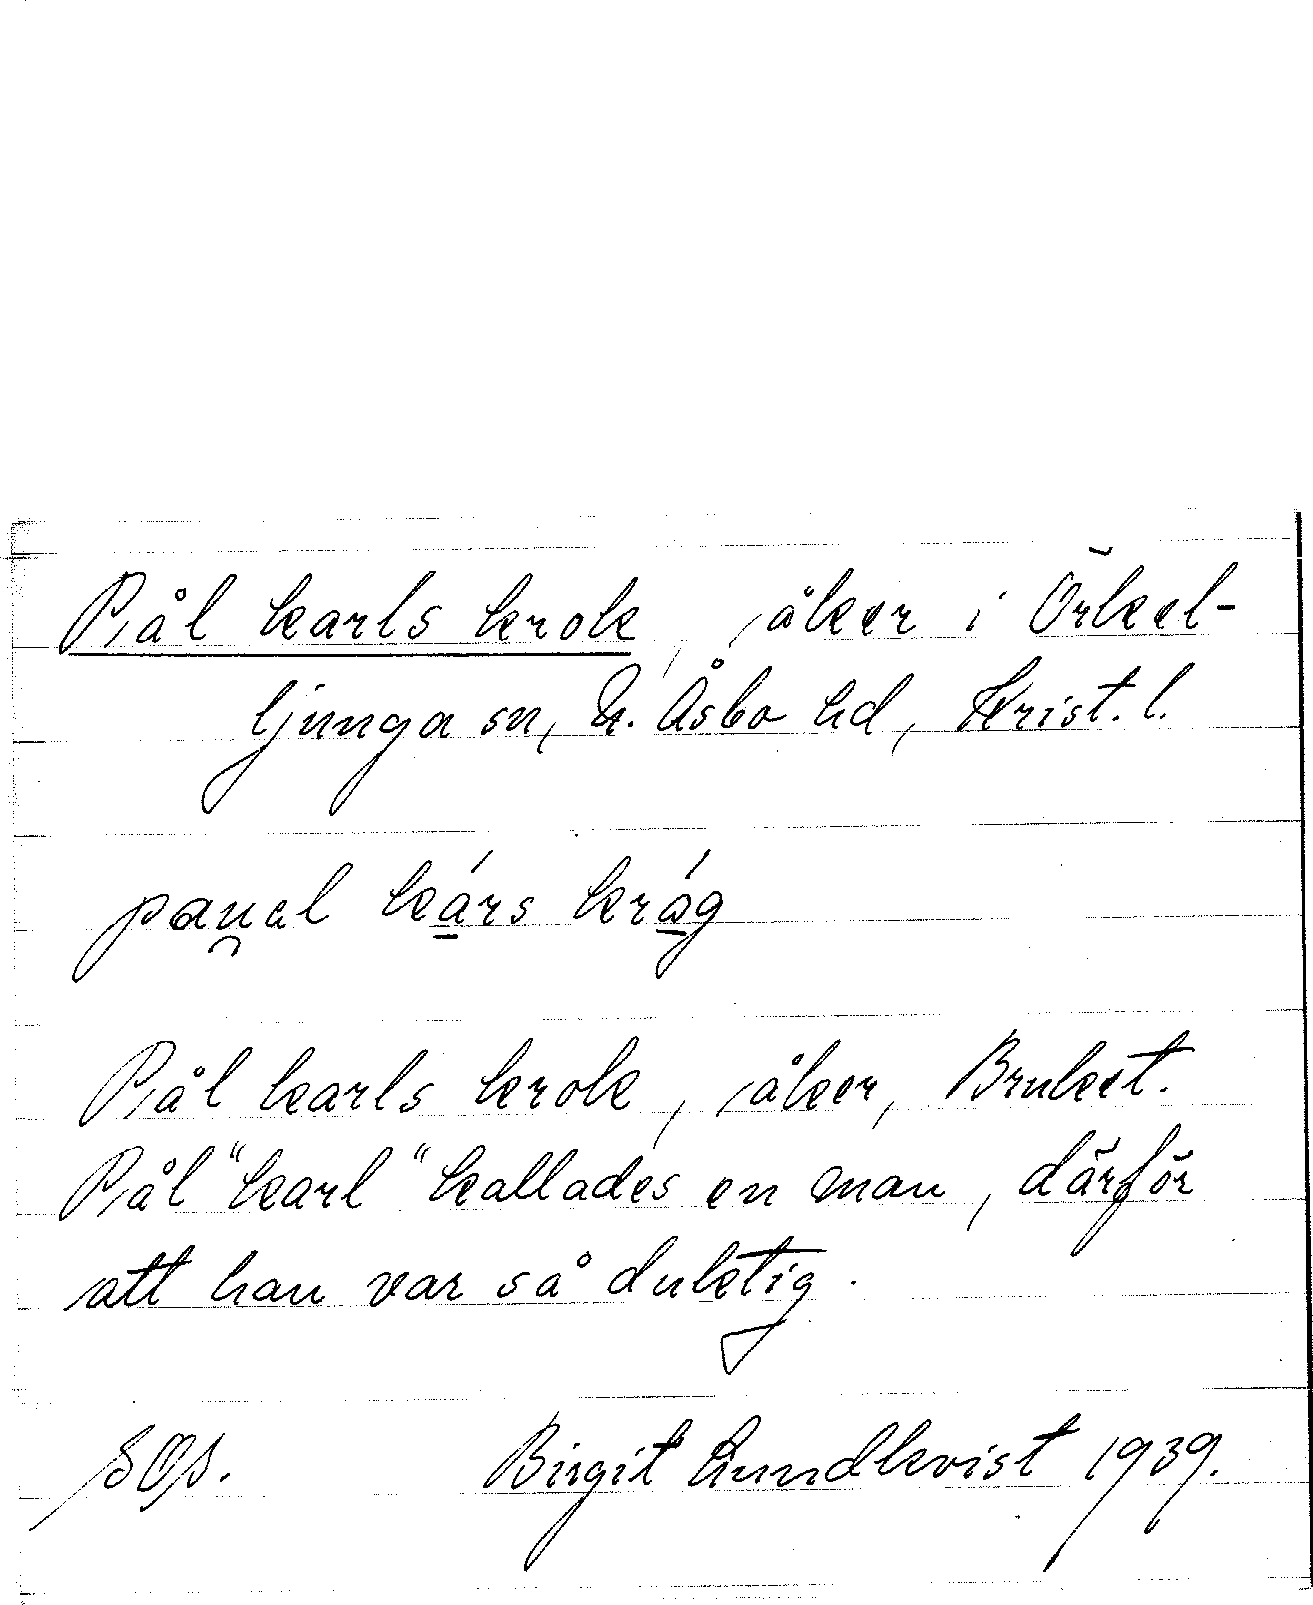 Pål karls krok, åker i Örkel-
ljunga sn, N. Åsbo hd, Krist. l.
pau̯əl ká̱rs krá̱g
Pål karls krok, åker, Bruket.
Pål "karl" kallades en man, därför
att han var så duktig.
Birgit Lundkvist 1939.